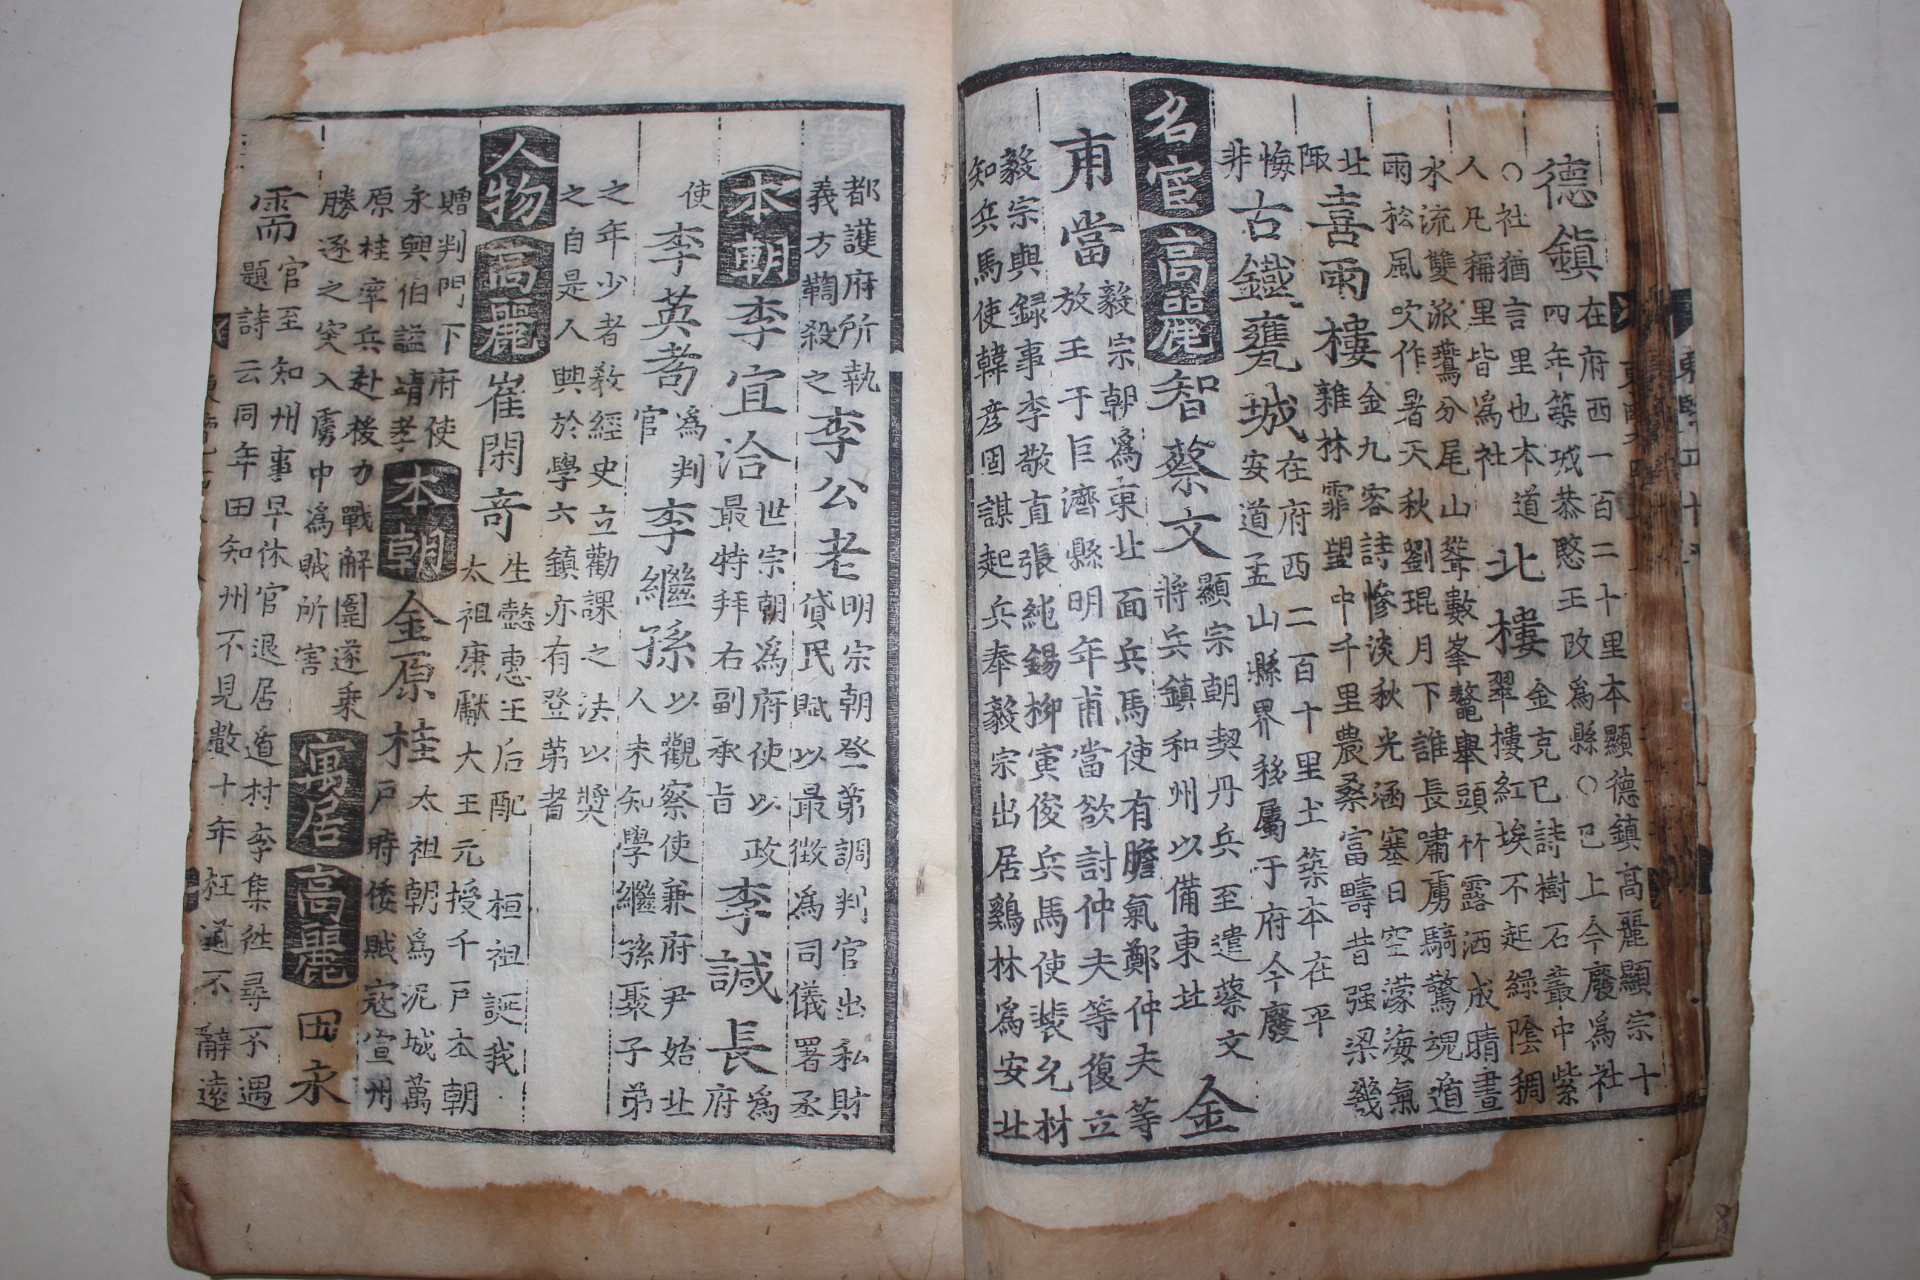 德鎮
在府西一百二十里本顯德鎮高麗顯宗十
四年築城恭愍王改爲縣○巳上今廢爲社
○社猶言里也本道
人凡稱里皆爲社
北樓
金克己詩樹石叢中紫
翠樓紅埃不起綠陰稠
水流雙派鷰分尾山聳數峯鼇舉頭竹露洒成晴晝
雨松風吹作暑天秋劉琨月下誰長嘯虜騎驚魂遁
北
陬
喜雨樓
金九容詩慘淡秋光涵塞日空濛海氣
雜林霏望中千里農桑富疇昔强梁幾
悔
非
古鐵甕城
在府西二百十里土築本在平
安道孟山縣界移屬于府今廢
名宦
高麗
智蔡文
顯宗朝契丹兵至遣蔡文
將兵鎮和州以備東北
金
甫當
毅宗朝爲東北面兵馬使有膽氣鄭仲夫等
放王于巨濟縣明年甫當欲討仲夫等復立
毅宗與錄事李敬直張純錫柳寅俊兵馬使裴允材
知兵馬使韓彦國謀起兵奉毅宗出居鷄林爲安北
都護府所執
義方鞫殺之
李公老
明宗朝登第調判官出私財
貸民賦以最徵爲司儀署丞
本朝
李宜洽
世宗朝爲府使以政
最特拜右副承旨
李諴長
爲
府
使
李英耇
爲判
官
李繼孫
以觀察使兼府尹始北
人未知學繼孫聚子弟
之年少者敎經史立勸課之法以奬
之自是人興於學六鎮亦有登第者
人物
高麗
崔閑奇
生懿惠王后配 桓祖誕我
太祖康獻大王元授千戶本朝
贈判門下府使
永興伯諡靖孝
本朝
金原桂
太祖朝爲泥城萬
戶時倭賊寇宣州
原桂率兵赴援力戰解圍遂乘
勝逐之突入虜中爲賊所害
寓居
高麗
田永
需
官至知州事早休官退居道村李集往尋不遇
題詩云同年田知州不見數十年枉道不辭遠